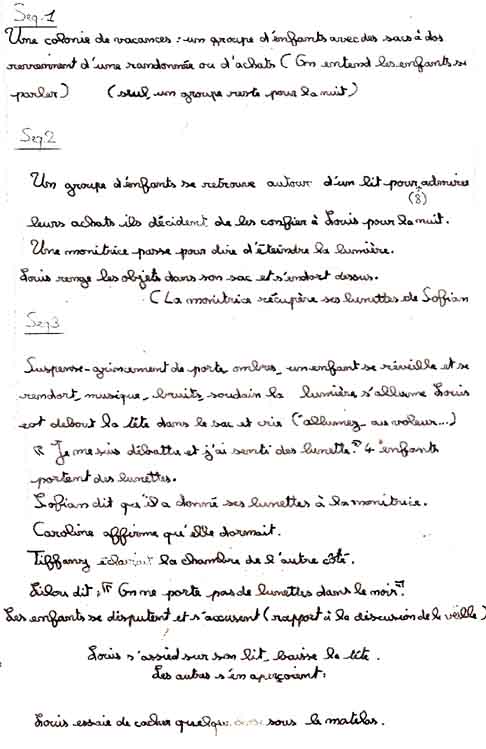 Seq.1
Une colonie de vacances : un groupe d'enfants avec des sacs à dos
reviennent d'une randonnée ou d'achats ( On entend les enfants se
parler ) ( seul un groupe reste pour la nuit )
Seq2
Un groupe d'enfants se retrouve autour d'un lit pour admirer
(8)
leurs achats ils décident de les confier à Louis pour la nuit.
Une monitrice passe pour dire d'éteindre la lumière.
Louis range les objets dans son sac et s'endort dessus.
( La monitrice récupère ses lunettes de Sofian
Seq3
Suspense - grincement de porte ombres - un enfant se réveille et se
rendort, musique, bruits, soudain la lumière s'allume Louis
est debout la tête dans le sac et crie ("allumez - au voleur...)
" Je me suis débattu et j'ai senti des lunette." 4 enfants
portent des lunettes.
Sofian dit qu'il a donné ses lunettes à la monitrice.
Caroline affirme qu'elle dormait.
Tiffany éclairait la chambre de l'autre côté.
Lilou dit : " On ne porte pas de lunettes dans le noir".
Les enfants se disputent et s'accusent (rapport à la discusion de la veille)
Louis s'assied sur son lit, baisse la tête.
Les autres s'en aperçoivent :
Louis essaie de cacher quelque sous le matelas.